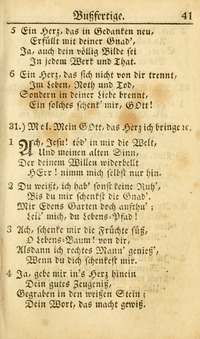 Bußfertige. 41
5 Ein Herz, das in Gedanken neu,
Erfüllt mit deiner Gnad',
Ja, auch dein völlig Bilde sei
In jedem Werk und That.
6 Ein Herz, das sich nicht von dir trennt,
Im Leben, Noth und Tod,
Sondern in deiner Liebe brennt,
Ein solches schenk' mir, GOtt!
31.) Mel. Mein GOtt, das Herz ich bringe ꝛc.
1 Ach, Jesu! töd' in mir die Welt,
Und meinen alten Sinn,
Der deinem Willen widerbellt
HErr! nimm mich selbst nur hin.
2 Du weißt, ich hab' sonst keine Ruh',
Bis du mir schenkst die Gnad'.
Mir Edens Garten doch aufthu';
Leit' mich, du Lebens-Pfad!
3 Ach, schenke mir die Früchte süß,
O Lebens-Baum! von dir,
Alsdann ich rechtes Mann' genieß',
Wenn du dich schenkest mir.
4 Ja, gebe mir in's Herz hinein
Dein gutes Zeugeniß,
Gegraben in den weißen Stein;
Dein Wort, das macht gewiß.